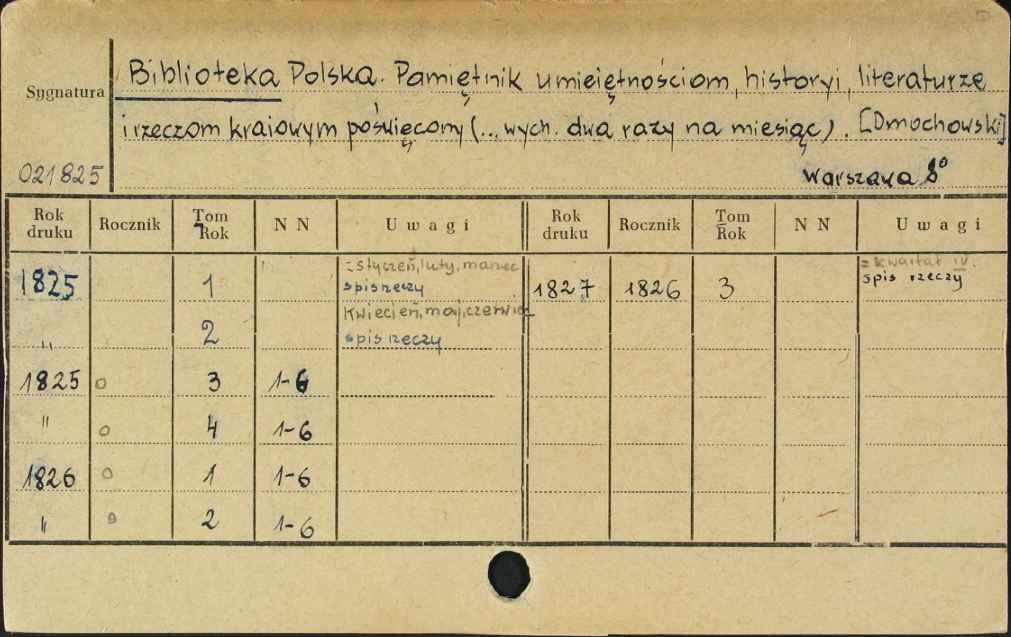 Biblioteka Polska. Pamiętnik umieiętnościom, historyi, literaturze
Sygnatura
i rzeczom kraiowym poświęcony (... wych. dwa razy na miesiąc). [Dmochowski]
021825
Warszawa 8°
Rok druku Rocznik Tom Rok N N Uwagi Rok druku Rocznik Tom Rok N N Uwagi
= styczeń, luty, marzec = kwartał IV.
1825 1 spis rzeczy 1827 1826 3 spis rzeczy
kwiecień, maj, czerwiec
" 2 spis rzeczy
1825 o 3 1-6
" o 4 1-6
1826 o 1 1-6
" o 2 1-6